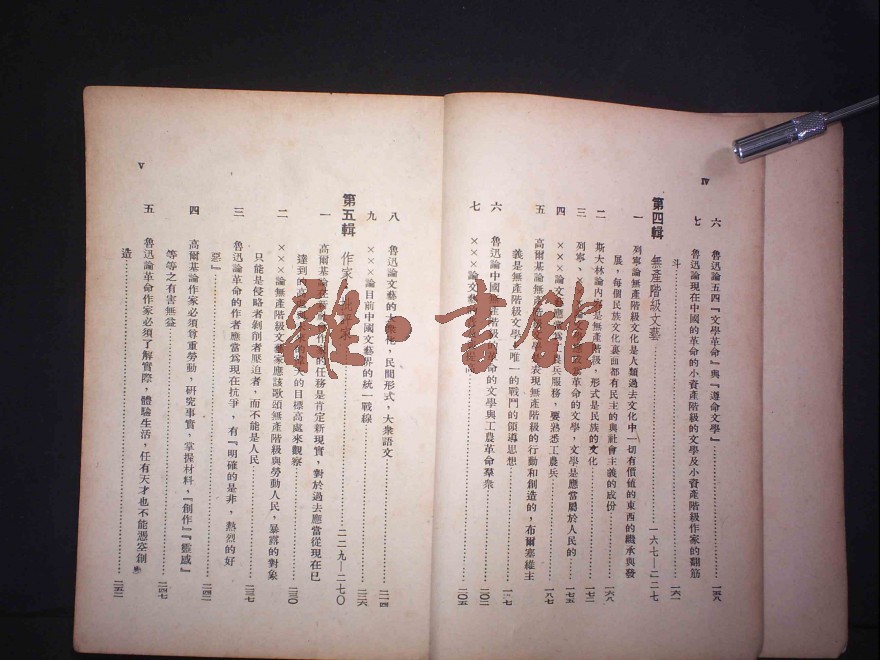 IV
六 魯迅論五四『文學革命』與『遵命文學』……一五九
七 魯迅論現在中國的革命的小資產階級的文學及小資產階級作家的翻筋
斗……一六一
第四輯 無產階級文藝……一六七—二二七
一 列寧論無產階級文化是人類過去文化中一切有價值的東西的繼承與發
展,每個民族文化裏面都有民主的與社會主義的成份……一六八
二 斯大林論內容是無產階級,形式是民族的文化……一七二
三 列寧、革命的文學,文學是應當屬於人民的……一七五
四 ×××論文藝應當為工農兵服務,要熟悉工農兵……一八七
五 高爾基論無產階級表現無產階級的行動和創造的,布爾塞維主
義是無產階級文學唯一的戰鬥的領導思想
六 魯迅論中國無產階級的革命的文學與工農革命羣衆……二〇二
七 ×××論文藝……二〇五
八 魯迅論文藝的大衆化,民間形式,大衆語文……二一四
九 ×××論目前中國文藝界的統一戰線……二二六
第五輯 作家……二二九—二七〇
一 高爾基論的任務是肯定新現實,對於過去應當從現在已
達到的高的目標高處來觀察……二三〇
二 ×××論無產階級文藝家應該歌頌無產階級與勞動人民,暴露的對象
只能是侵略者剝削者壓迫者,而不能是人民……二三七
三 魯迅論革命的作者應當為現在抗爭,有『明確的是非,熱烈的好
惡』……二四二
四 高爾基論作家必須尊重勞動,研究事實,掌握材料,『創作』『靈感』
等等之有害無益……二四七
五 魯迅論革命作家必須了解實際,體驗生活,任有天才也不能憑空創
造……二五二
V
雜·書館